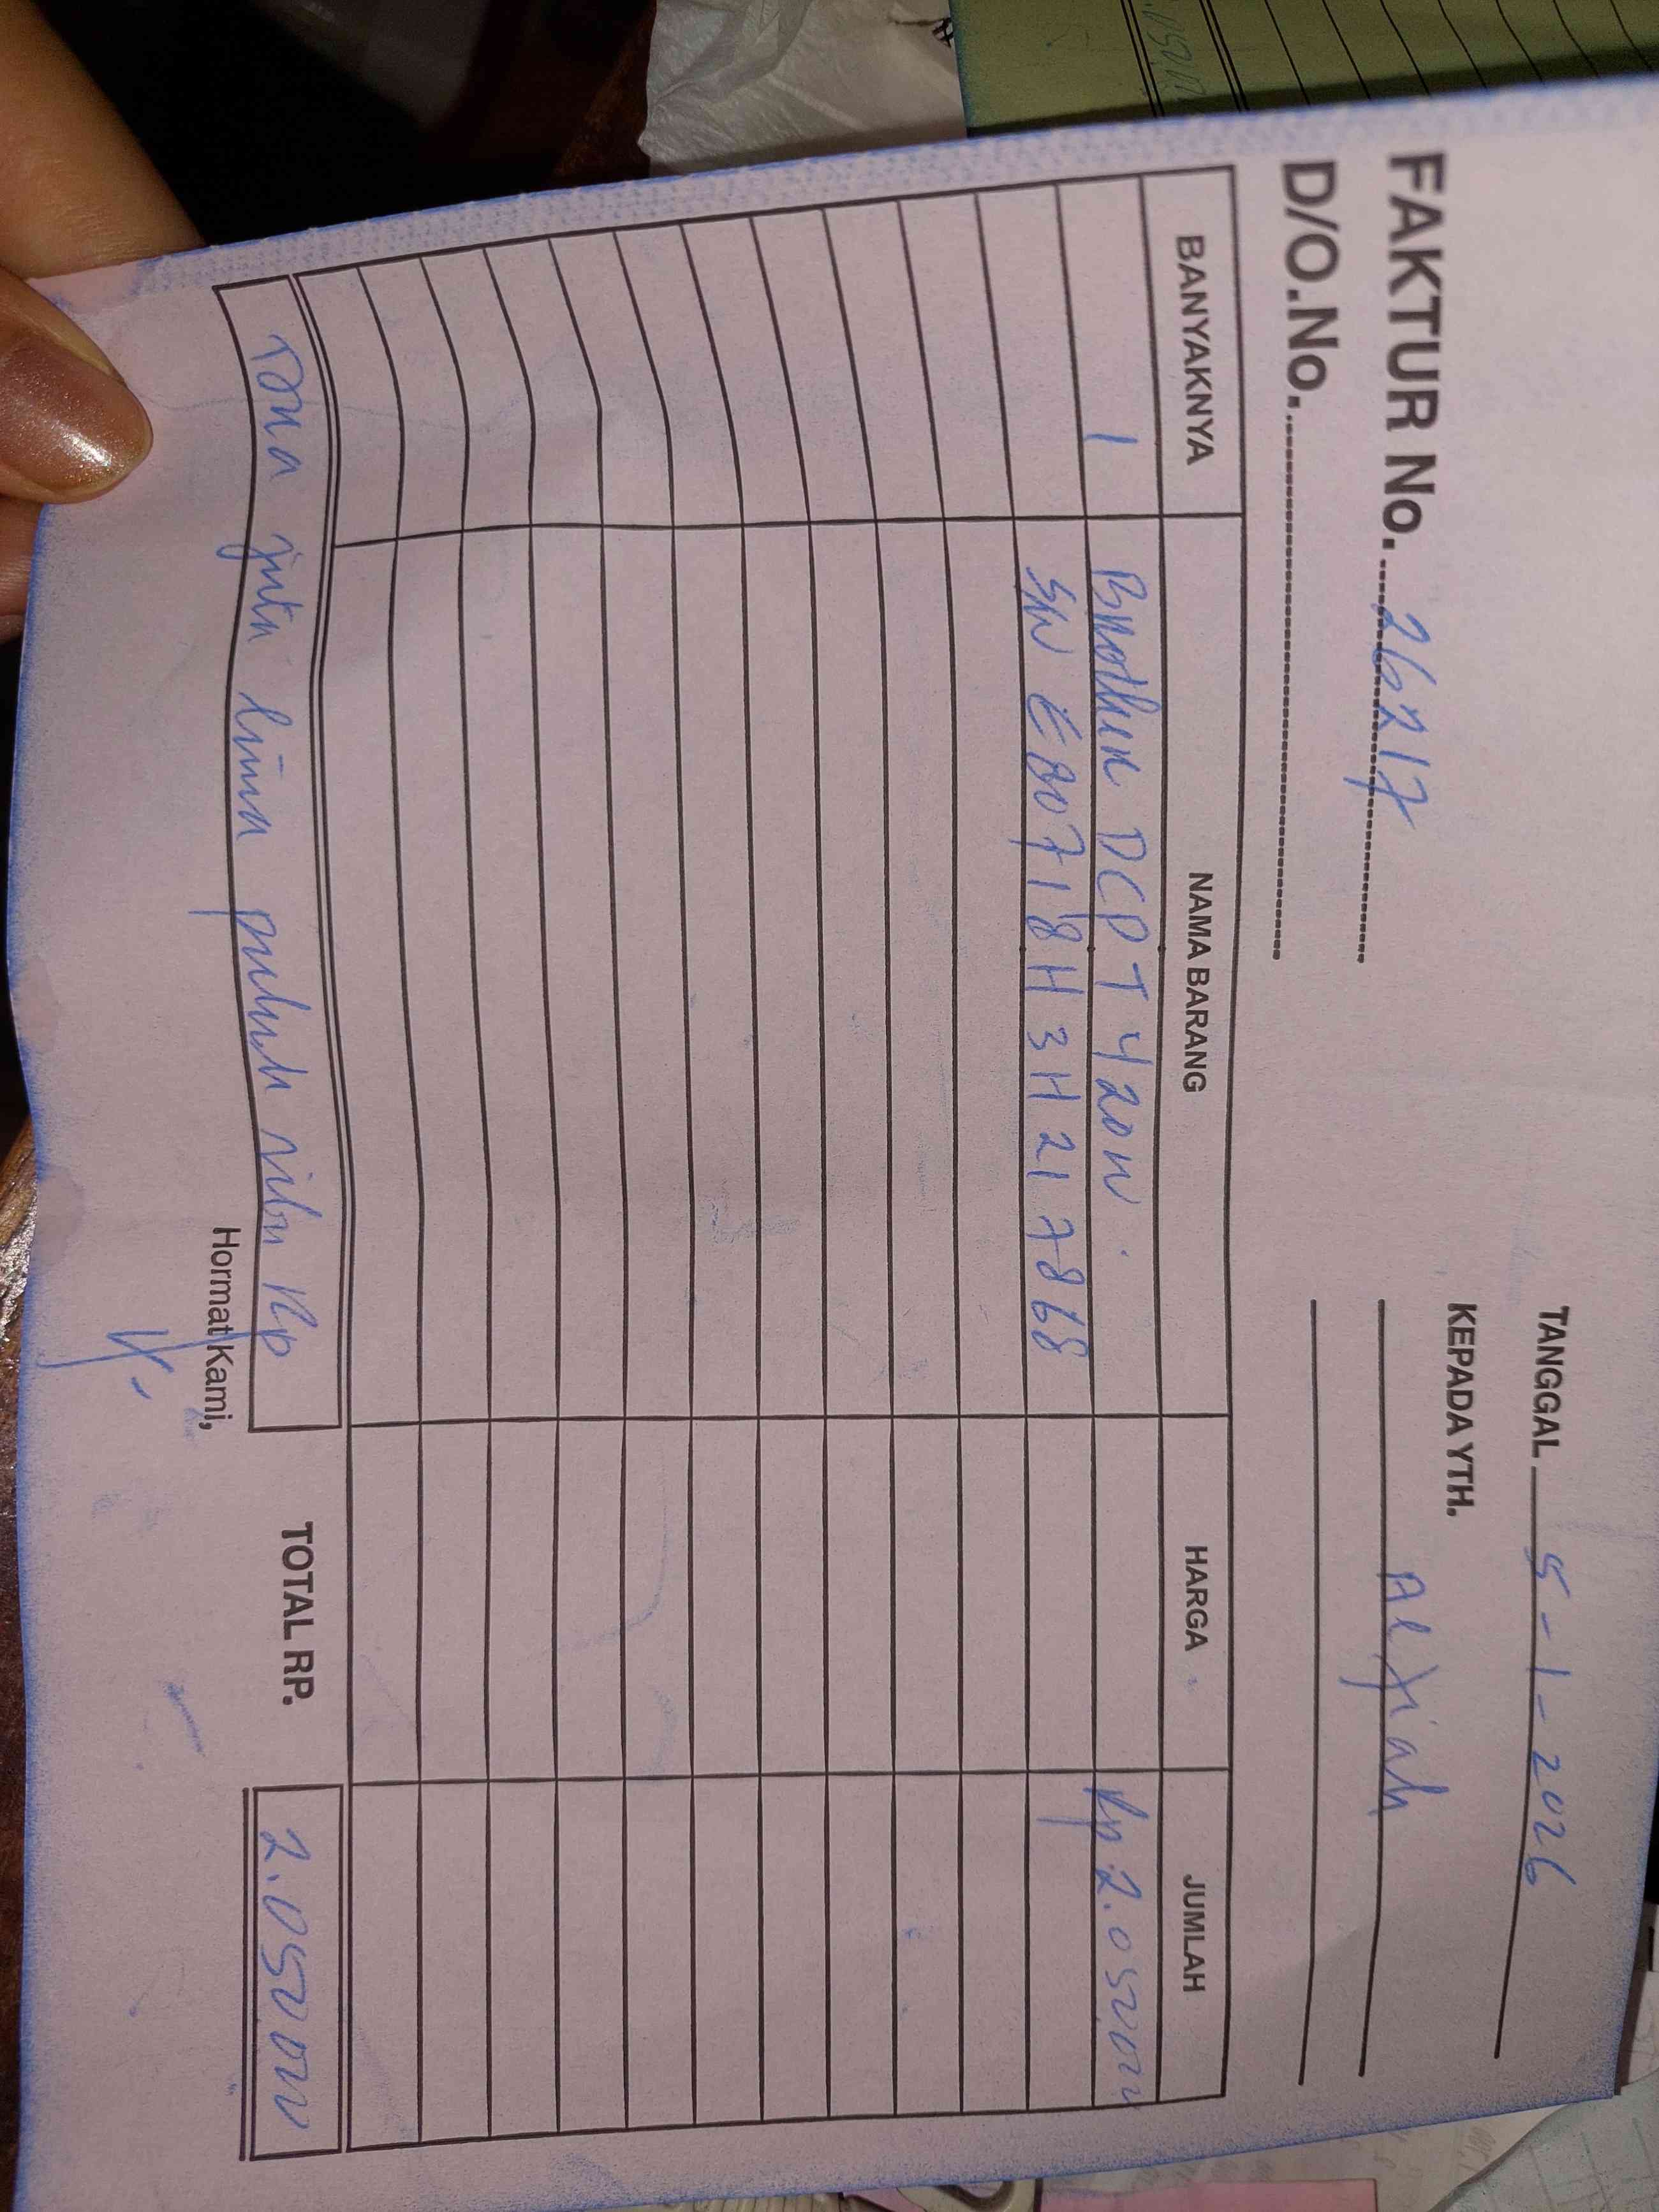 TANGGAL 5-1-2026
KEPADA YTH.
Alfiah
FAKTUR No. 26217
D/O.No.
BANYAKNYA NAMA BARANG HARGA JUMLAH
1 Brother DCP T420W. Rp 2.050.000
S/N E80718H3H217868
Dua juta lima puluh ribu Rp TOTAL RP. 2.050.000
Hormat Kami,